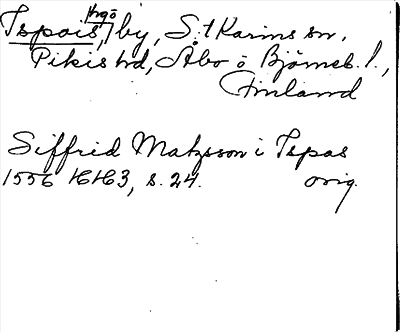 Ispois, by, S:t Karins sn.
Pikis hd, Åbo o Björneb. l.,
Finland
Siffrid Matzsson i Ispas
1556 KH63, s. 24. orig.